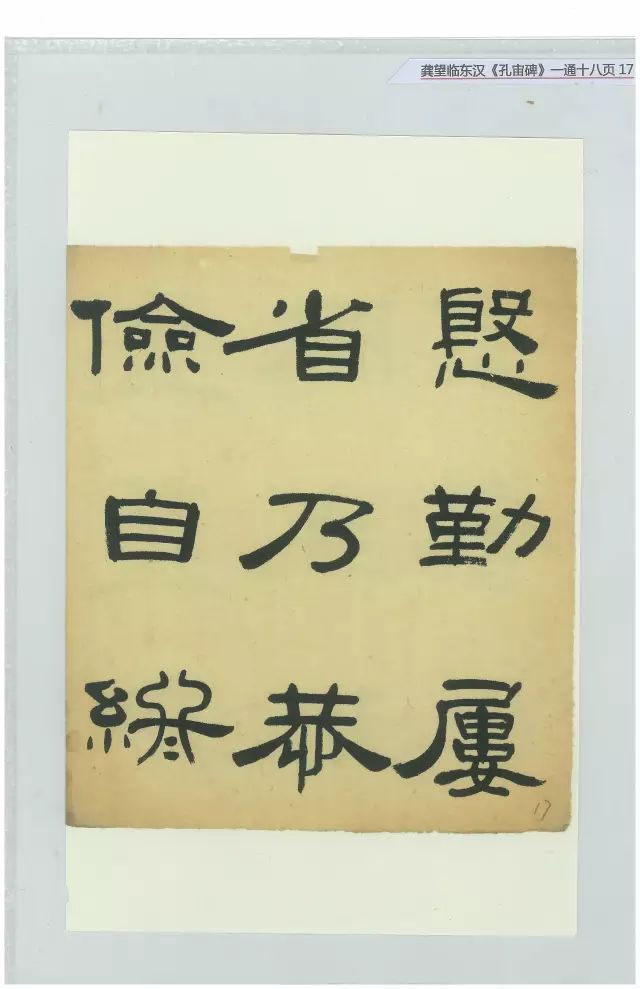 龚望临东汉《孔宙碑》一通十八页 17
慇勤屢
省乃恭
儉自終
17